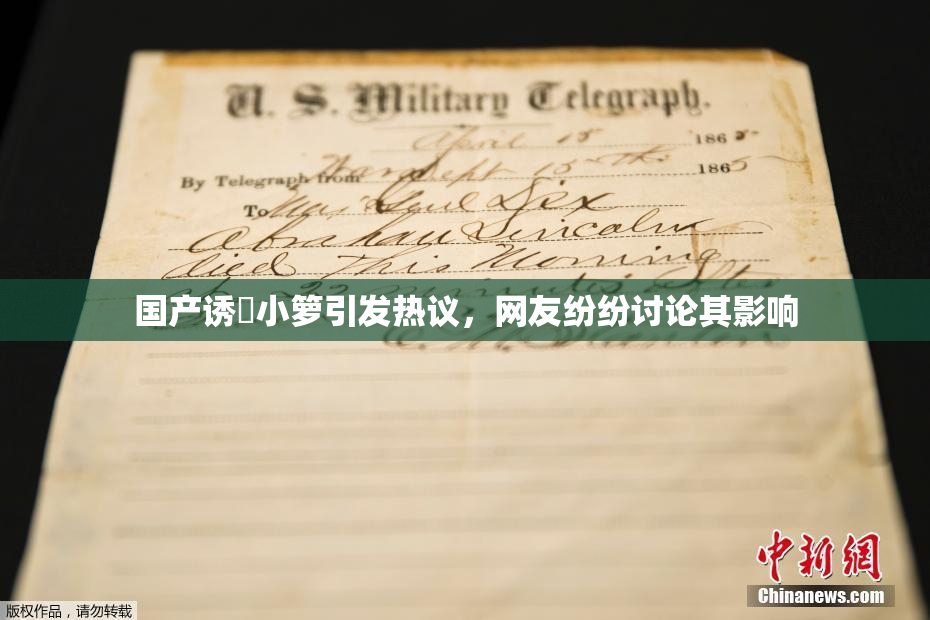 U. S. Military Telegraph.
April 15 1865
By Telegraph from War Dept 15th 1865
To Maj Genl Dix
Abraham Lincoln
died This Morning
22 minutes after
国产诱小箩引发热议，网友纷纷讨论其影响
E. M. Stanton
中新網
Chinanews.com
版权作品，请勿转载